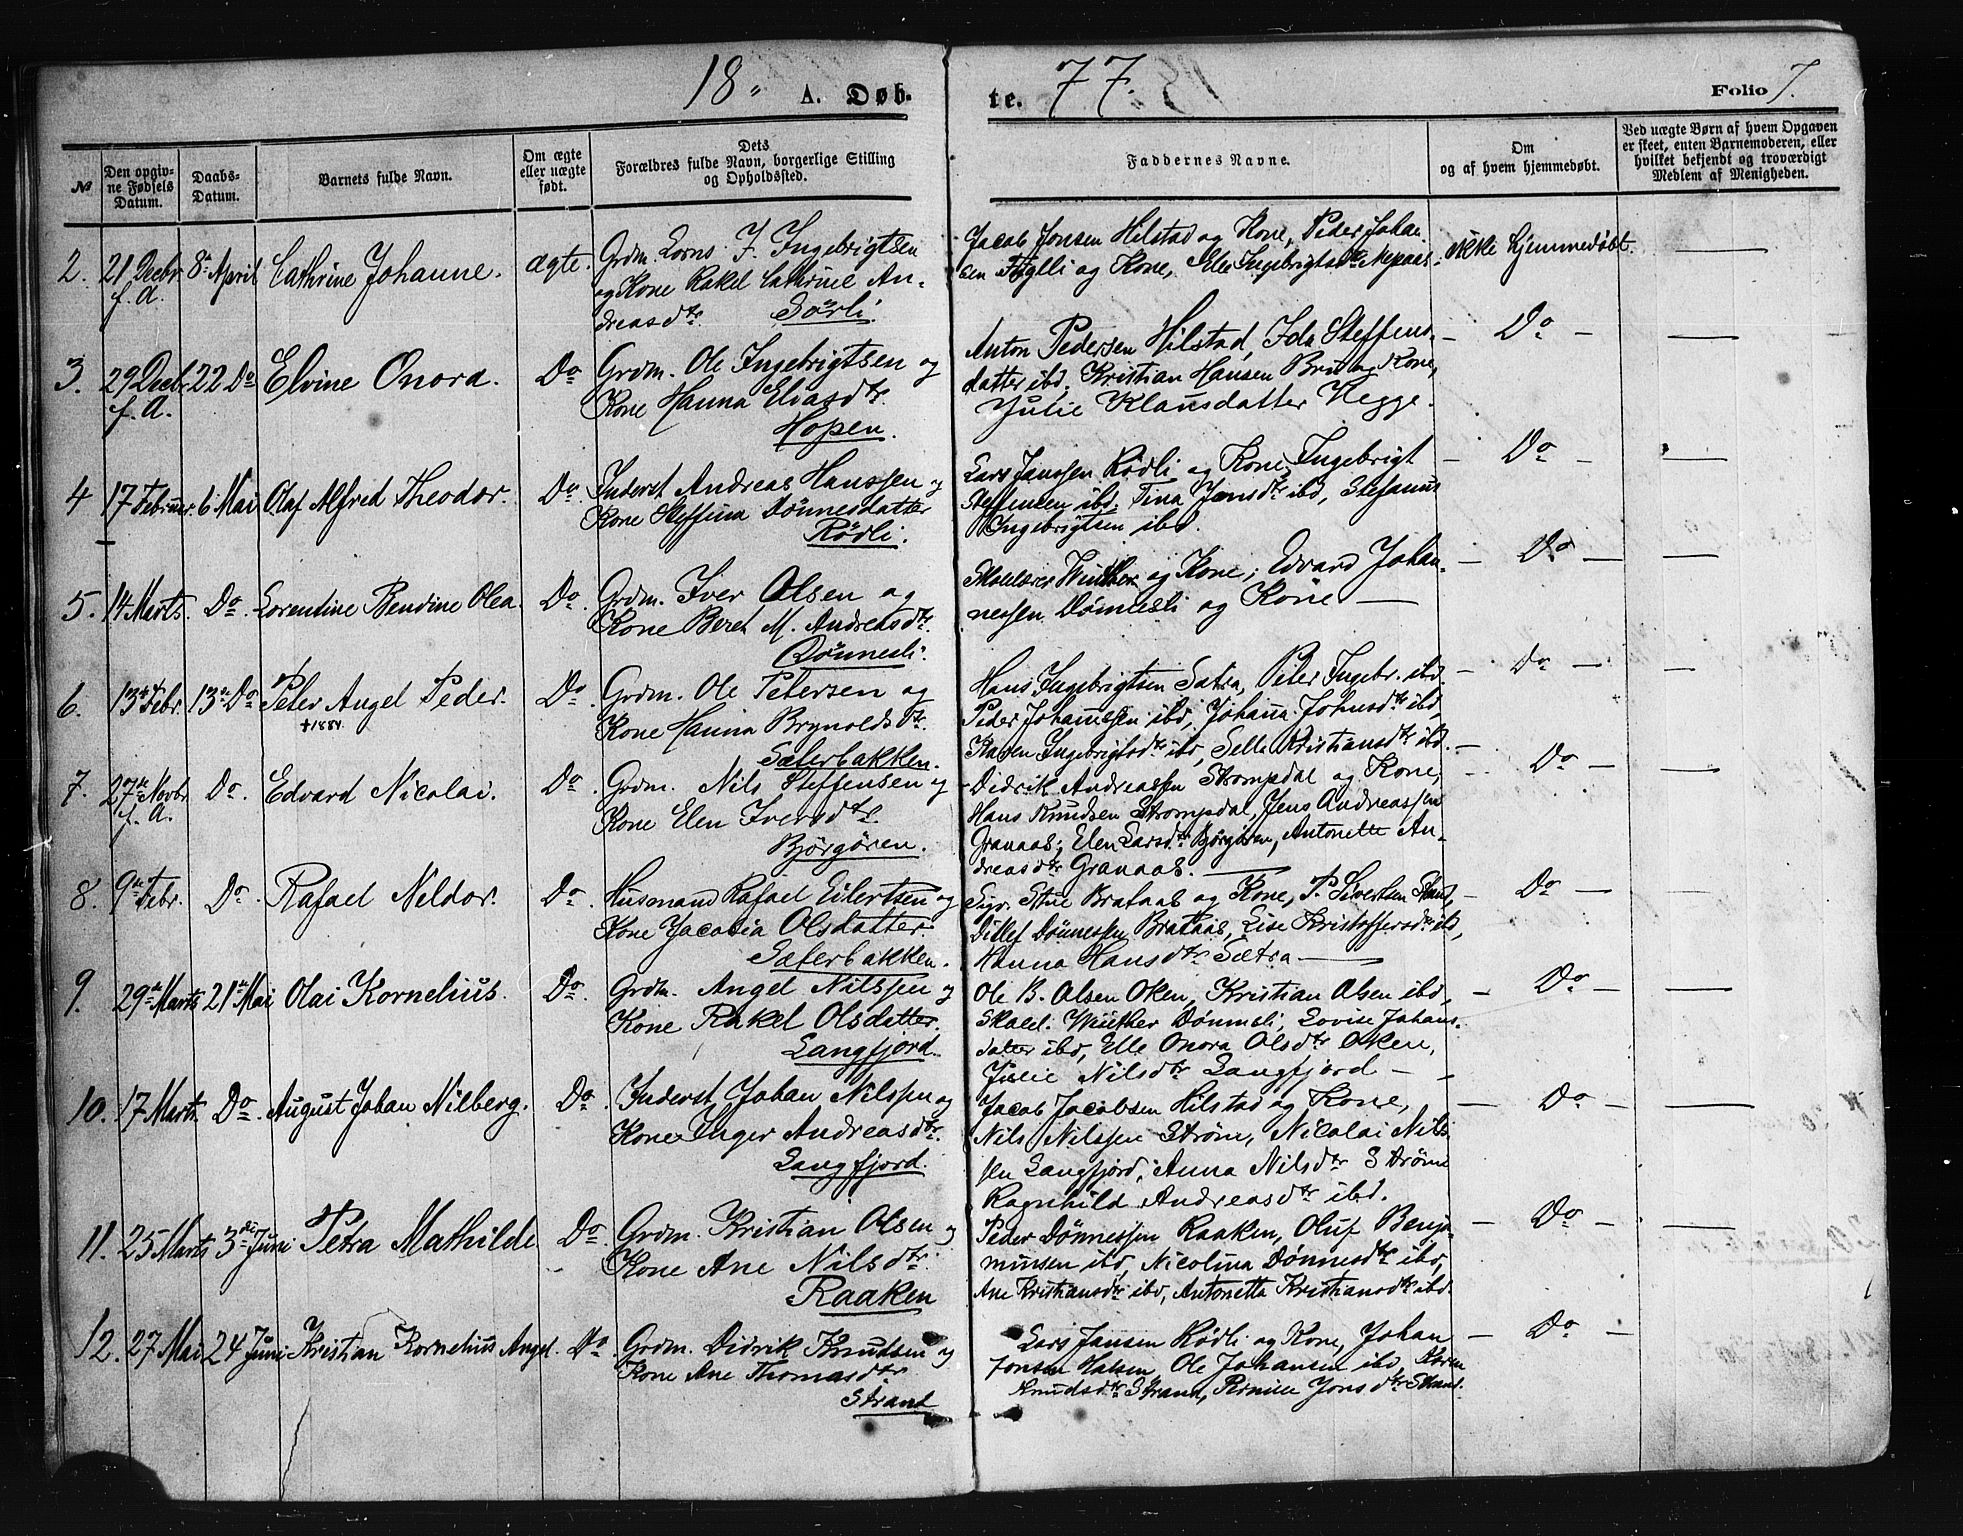 18 A. Døb- te. 77. Folio 7.
№
Den opgiv-
ne Fødsels
Datum.
Daabs-
Datum.
Barnets fulde Navn.
Om ægte
eller uægte
født.
Dets
Forældres fulde Navn, borgerlige Stilling
og Opholdssted.
Faddernes Navne.
Om
og af hvem hjemmedøbt.
Ved uægte Børn af hvem Opgaven
er skeet, enten Barnemoderen, eller
hvilket bekjendt og troværdigt
Medlem af Menigheden.
2. 21 Decbr. f. A. 8de April Cathrine Johanne. ægte.
Grdm. Lorns J. Ingebrigtsen
og Kone Rakel Cathrine An-
dreasdtr. Sörli.
Jacob Jonsen Hilstad og Kone, Peder Johan-
sen og Kone, Elle Ingebrigtsdtr
ikke hjemmedöbt. —
3. 29 Decbr. f. A. 22 Do Elvine Onora. Do
Grdm. Ole Ingebrigtsen og
Kone Hanna Eliasdtr.
Hopen.
Anton Pedersen Hilstad, Ida Steffens-
datter ibd. Kristian Hansen og Kone,
Julie Klausdatter Hegge.
— Do — —
4 17 Februar. 6 Mai Olaf Alfred Theodor. Do
Inderst Andreas Hanssen og
Kone Steffina Dönnesdatter
Rödli.
Lars Janssen Rödli og Kone, Ingebrigt
Steffensen ibd. Tina Jensdtr ibd, Stefanus
Ingebrigtsen ibd.
— Do — —
5. 14 Marts. Do. Lorentine Bendine Olea. Do.
Grdm. Iver Olsen og
Kone Beret M. Andreasdtr.
Dönnesli.
Winther og Kone, Edvard Johan-
nessen Dönnesli og Kone —
— Do — —
6. 13de Febr. 13de Do Peter Angel Peder. Do
†1884.
Grdm. Ole Petersen og
Kone Hanna Brynoldsdtr.
Sæterbakken.
Hans Ingebrigtsen Sætra, Peter Ingebr. ibd.
Peder Johannessen ibd, Johanna Johnsdtr ibd,
Karen Ingebrigtsdtr ibd, Sella Kristiansdtr ibd.
— Do — —
7. 27de Novbr. f. A. Do. Edvard Nicolai. Do
Grdm. Nils Steffensen og
Kone Elen Iversdtr.
Björgören.
Didrik Andreassen Strompdal og Kone,
Hans Knudsen Strompdal, Jens Andreassen
Granaas, Elen Larsdtr Björgören, Antonette An-
dreasdtr Granaas. —
— Do — —
8. 9de Febr. Do. Rafael Neldor. Do.
Husmand Rafael Eilertsen og
Kone Jacobia Olsdatter
Sæterbakken.
Brataas og Kone, P. Sivertsen
Ditlef Dönnessen Brataas, Lise Kristoffersdtr ibd,
Hanna Hansdtr Sætra —
— Do — —
9. 29de Marts 21de Mai Olai Kornelius. Do.
Grdm. Angel Nilssen og
Kone Rakel Olsdatter.
Langfjord.
Ole B. Olsen Oken, Kristian Olsen ibd,
Skoled. Winther Dönnesli, Lovise Johans-
datter ibd, Elle Onora Olsdtr Oken,
Julie Nilsdtr Langfjord — —
— Do — —
10. 17 Marts. Do. August Johan Nilberg. Do.
Inderst Johan Nilssen og
Kone Inger Andreasdtr.
Langfjord.
Jacob Jacobsen Hilstad og Kone,
Nils Nilssen Ström, Nicolai Nils-
sen Langfjord, Anna Nilsdtr Ström
Ragnhild Andreasdtr ibd.
— Do — —
11. 25 Marts 3die Juni Petra Mathilde Do.
Grdm. Kristian Olsen og
Kone Ane Nilsdtr.
Raaken
Peder Dönnessen Raaken, Oluf Benja-
minsen ibd, Nicolina Dönnesdtr ibd,
Ane Kristiansdtr ibd, Antonetta Kristiansdtr ibd.
— Do — —
12. 27 Mai 24 Juni Kristian Kornelius Angel. Do.
Grdm. Didrik Knudsen og
Kone Ane Thomasdtr
Strand
Lars Jansen Rödli og Kone, Johan
Jonsen Ole Johansen ibd, Karen
Knudsdtr Strand, Jonsdtr Strand.
— Do —